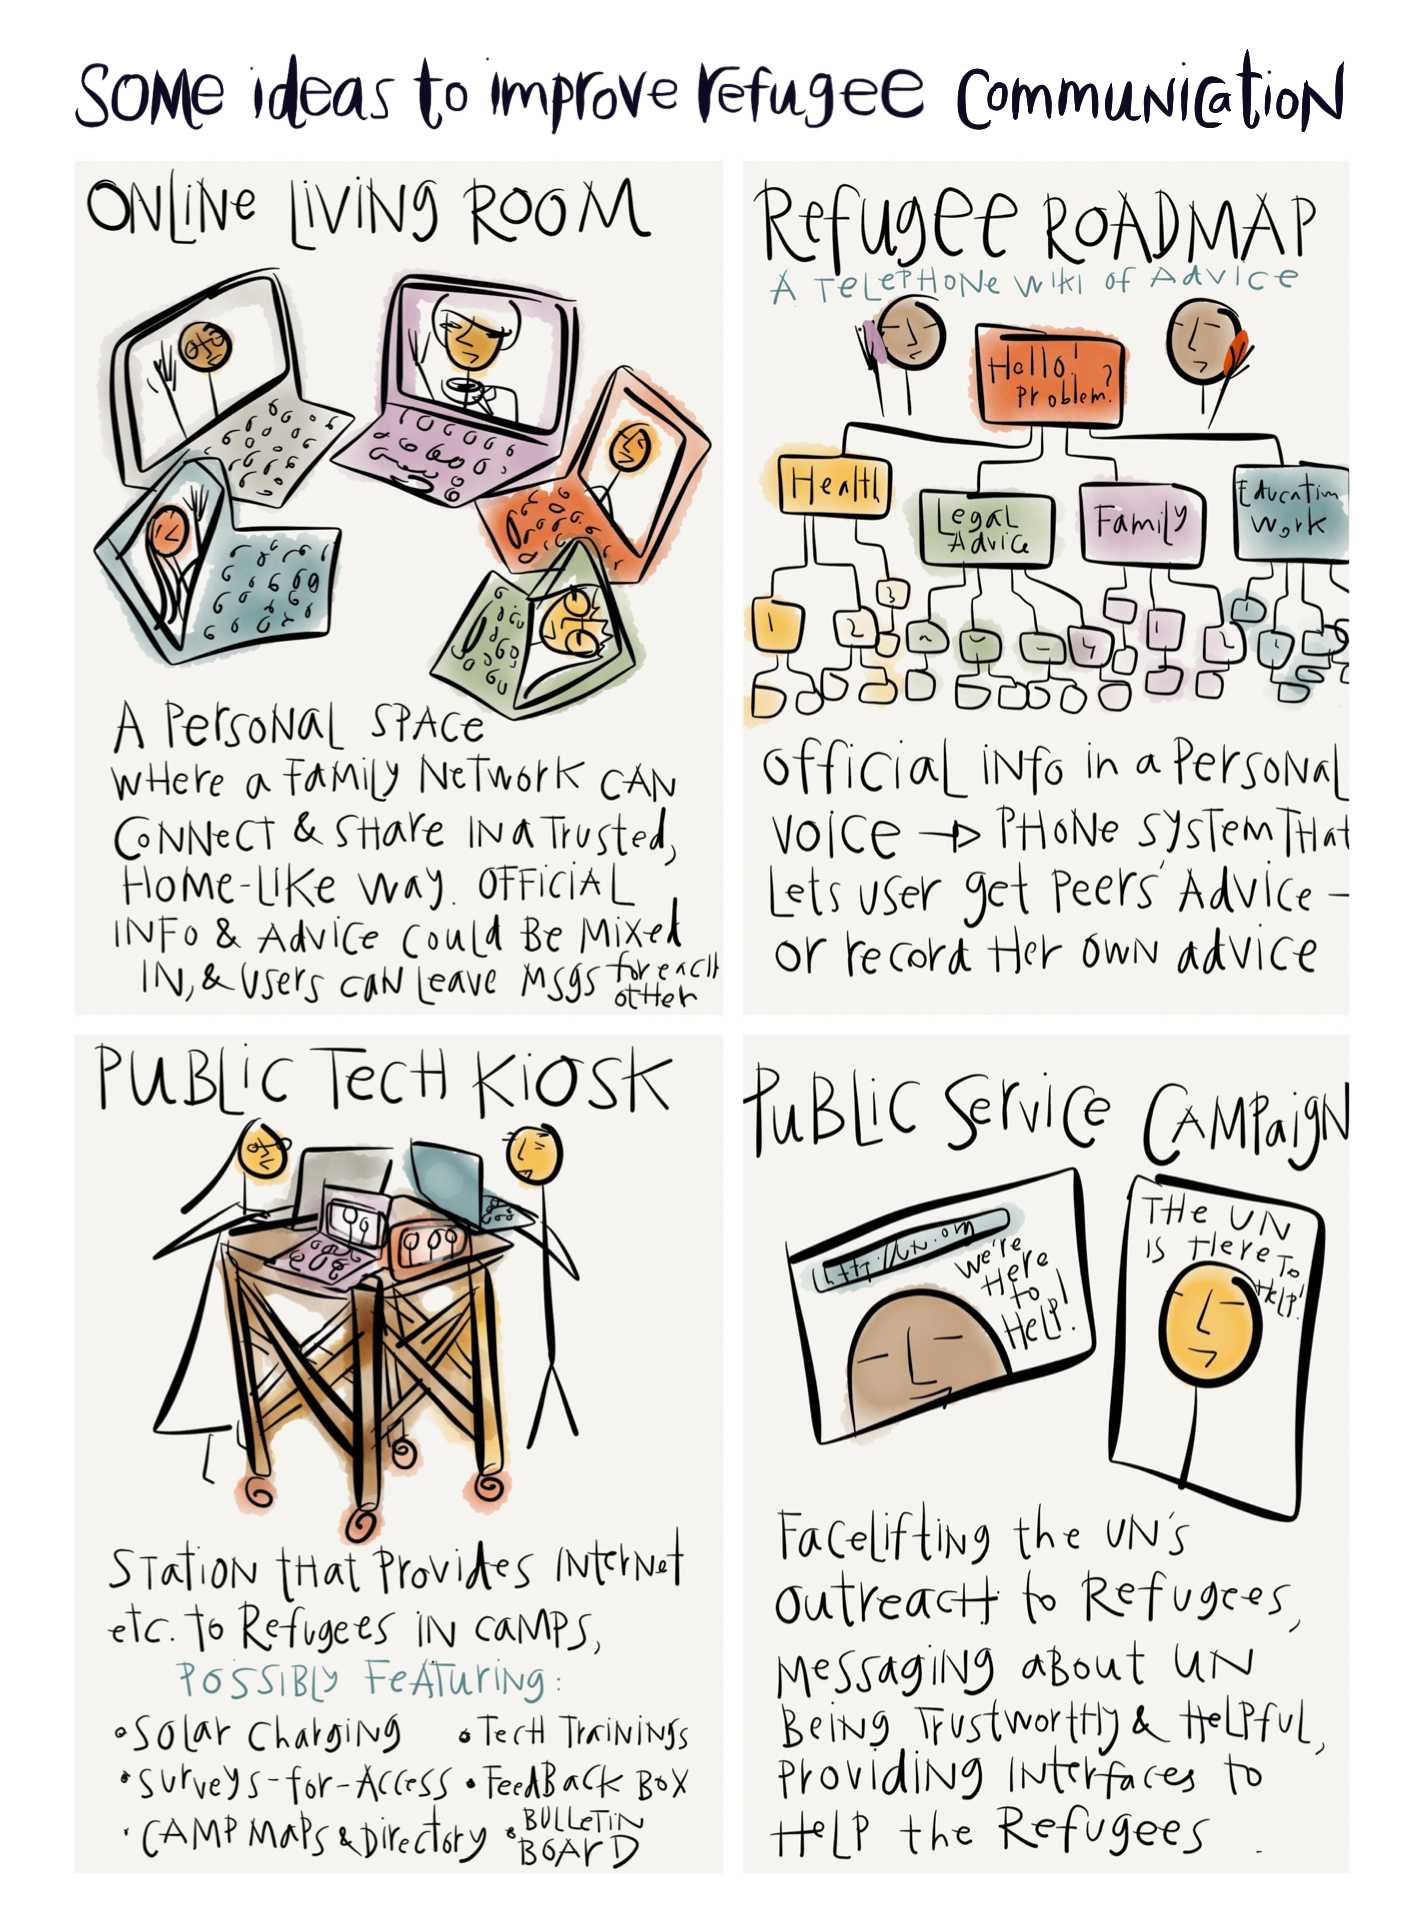 Some ideas to improve refugee communication
ONLINE LIVING ROOM
A Personal SPACE
WHere a FAMILY NeTWork CAN
CoNNecT & SHare IN a Trusted,
HOME-LIKE way. OFFICIAL
INFo & AdvICE Could Be Mixed
IN, & Users can Leave Msgs for each
other
Refugee ROADMAP
A TeLePHoNe wiki of Advice
Hello!
Problem?
Health
Legal
Advice
Family
Education
Work
1
2
3
4
1
official info in a Personal
voice → PHoNe System THat
Lets user get Peers' Advice —
or record Her own advice
PUBLIC TecH KiOSK
Station that Provides INterNet
etc. to Refugees IN camps,
PoSSIBLy FeATuring:
• Solar Charging
• Tech Trainings
• Surveys-for-Access
• FeedBack Box
• CAMP Maps & Directory
• BULLeTIN
BOArD
PuBLic Service CAMPaigN
http://un.org
we're
Here
to
HeLP!
THe UN
is Here To
HeLP!
Facelifting the UN's
outreacH to Refugees,
Messaging about UN
Being TrustwortHy & HeLPful,
Providing Interfaces to
HeLP the Refugees